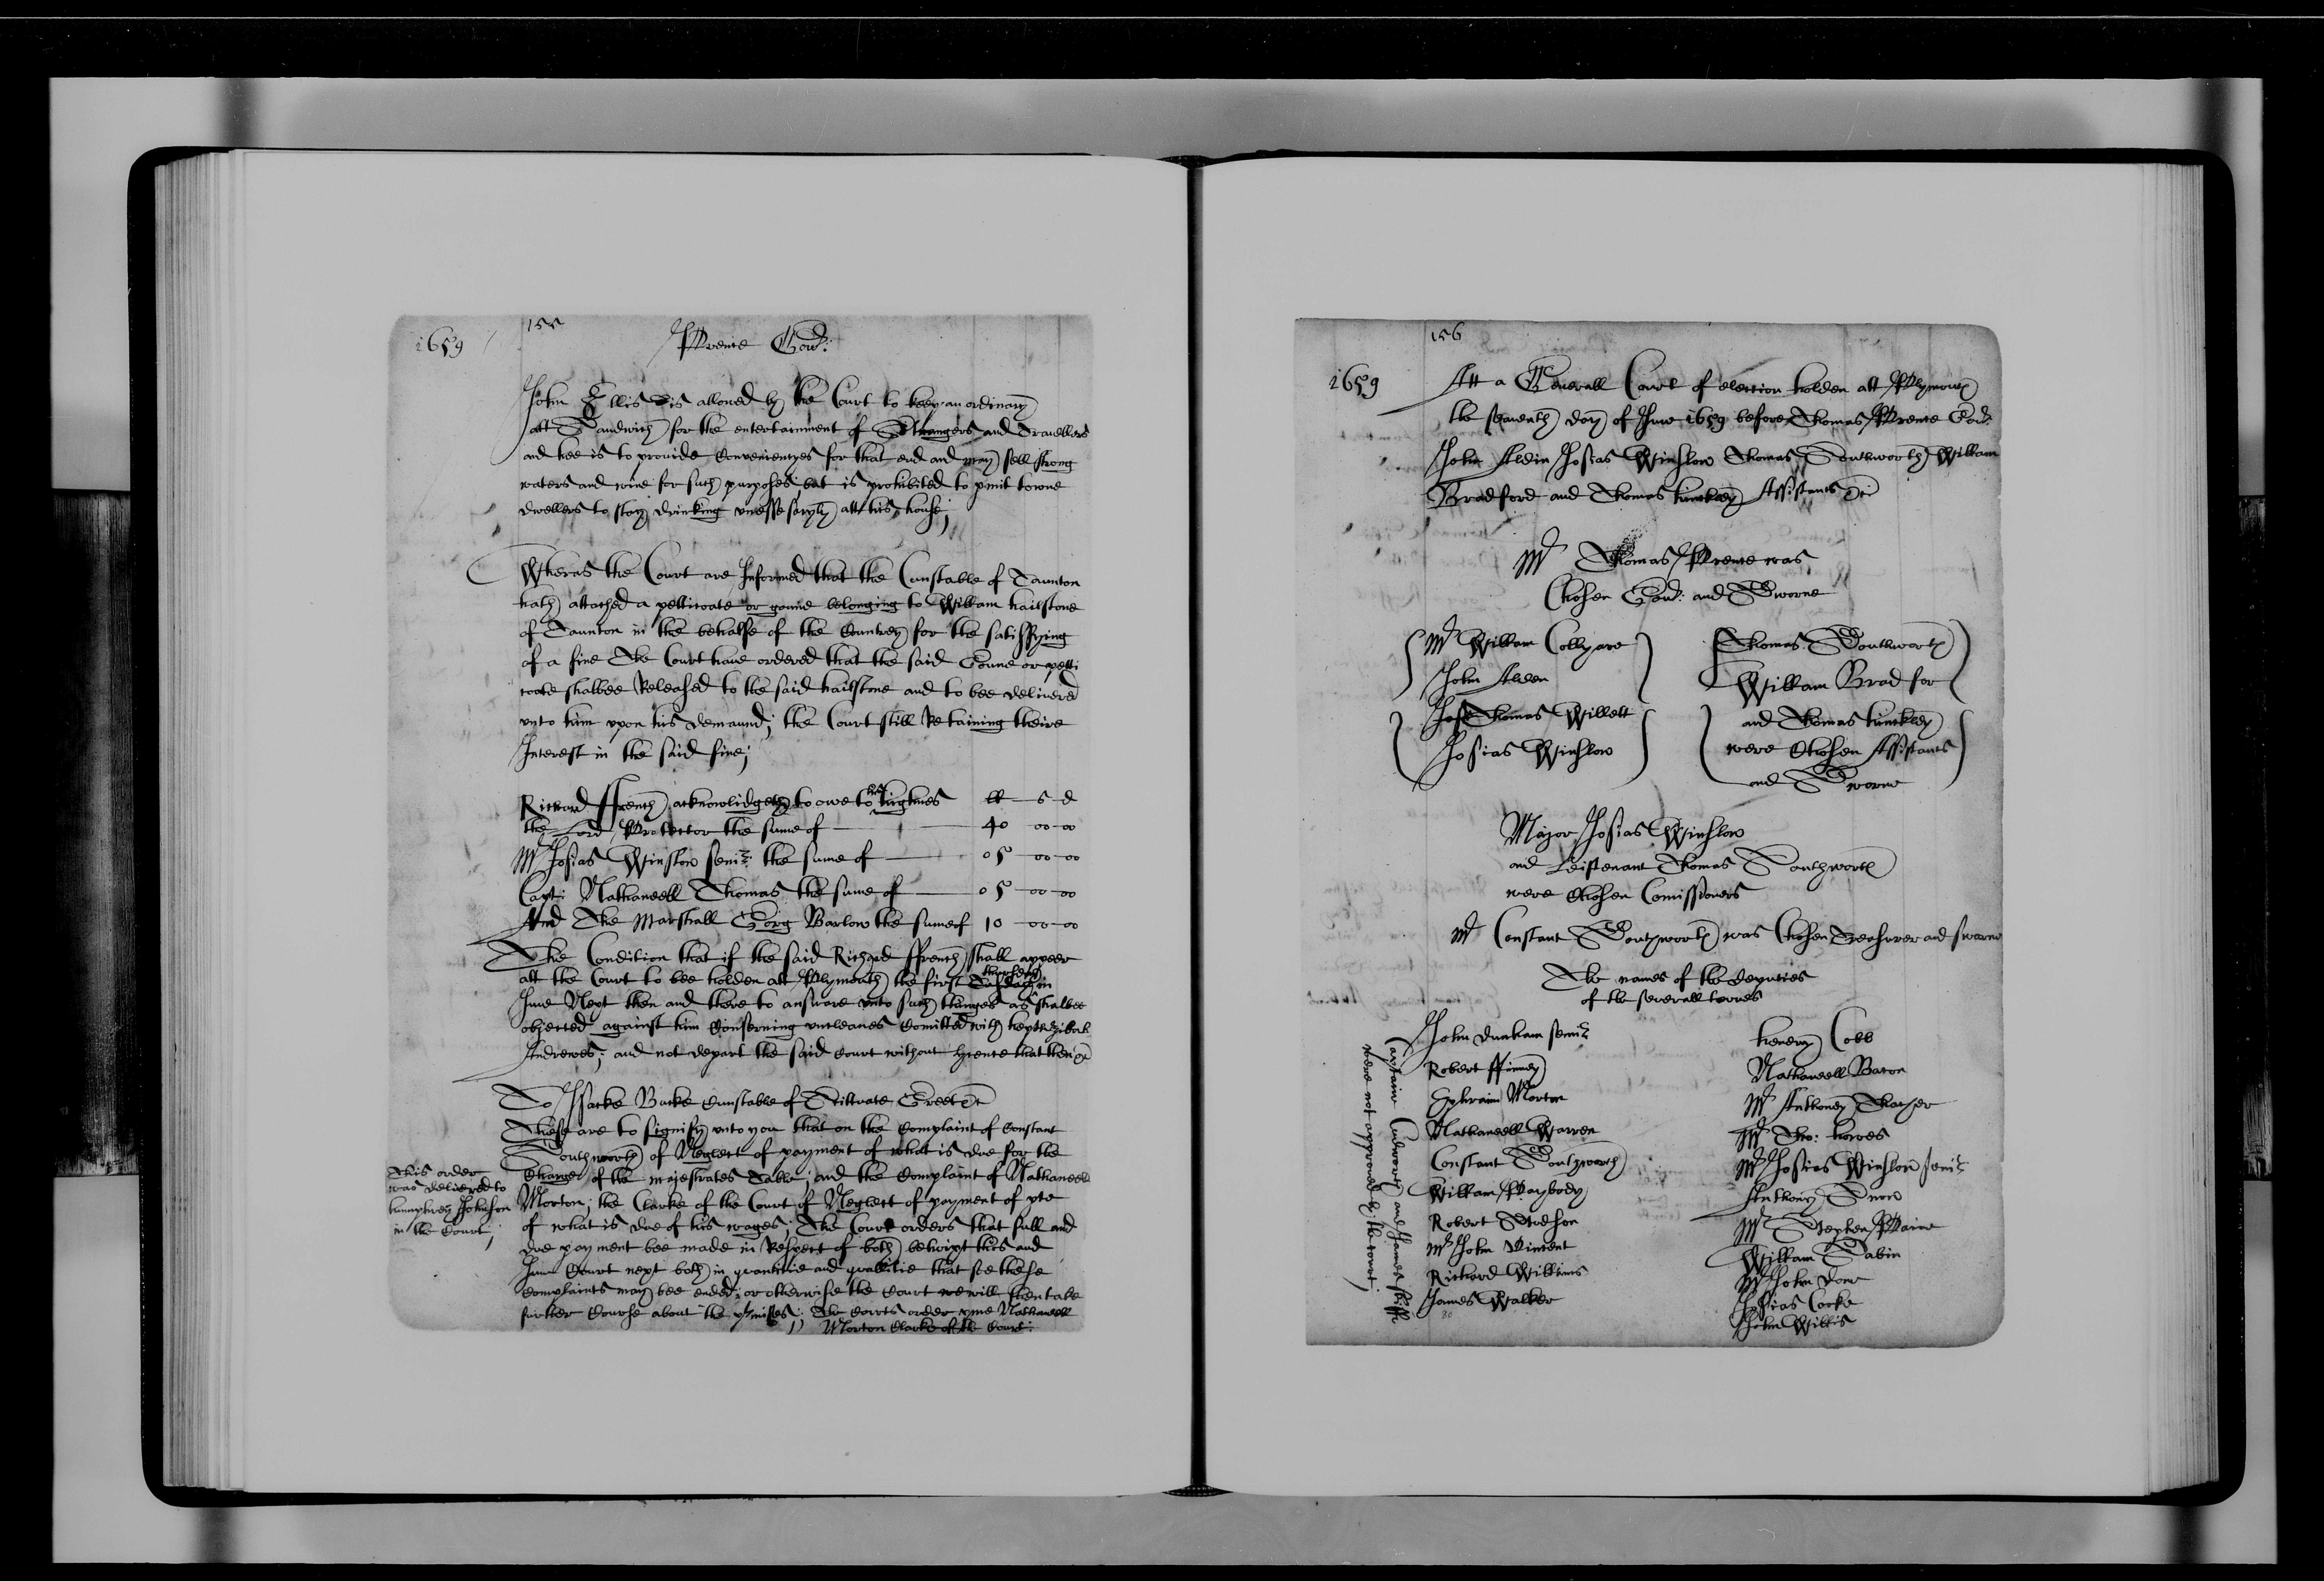 1659
155
Prence Gou:
John Ellis is allowed by the Court to keep an ordinary
att Sandwich for the entertainment of Strangers and Trauellers
and hee is to prouide Convenientyes for that end and may sell strong
waters and wine for such purposes; but is prohibited to pmit towne
dwellers to stay drinking vnessesaryly att his house;
Wheras the Court are Informed that the Cunstable of Taunton
hath attached a petticoate or goune belonging to Willam hailstone
of Taunton in the behalfe of the Countrey for the satisfying
of a fine The Court haue ordered that the said Goune or petti
coate shalbee Released to the said hailstone and to bee deliuered
vnto him vpon his demaund; the Court still Retaining theire
Interest in the said fine;
Richard ffrench acknowlidgeth to owe to his highnes ll s d
the Lord Protector the sume of 40 00 00
Mr Josias Winslow senir: the sume of 05 00 00
Capt: Nathaneell Thomas the sume of 05 00 00
And The Marshall Gorg Barlow the sume of 10 00 00
The Condition that if the said Richard ffrench shall appeer
att the Court to bee holden att Plymouth the first thursday in
June Next then and there to answare vnto such thinges as shalbee
objected against him Conserning vncleanes Comitted with hepthzibah
Andrewes; and not depart the said Court without lycence that then &c
To Isacke Bucke Cunstable of Scittuate Greet &c
These are to signify vnto you that on the Complaint of Constant
Southworth of Neglect of payment of what is due for the
Charge of the majestrates Table; and the Complaint of Nathaneell
Morton; the Clarke of the Court of Neglect of payment of pte
of what is due of his wages; The Court orders that full and
due payment bee made in Respect of both betwixt this and
June Court next both in quantitie and quallitie that soe these
Complaints may bee ended; or otherwise the Court will then take
further Course about the pmises;; The Courts order pme Nathaneell
Morton Clarke of the Court:
This order
was deliuered to
humphrey Johnson
in the Court;
156
1659
Att a Generall Court of election holden att Plymouth
the seauenth day of June 1659 before Thomas Prence Gour
John Aldin Josias Winslow Thomas Southworth Willam
Bradford and Thomas hinckley Assistants &c
Mr Thomas Prence was
Chosen Gour: and Sworne
Mr Willam Collyare
John Alden
Thomas Willett
Josias Winslow
Thomas Southworth
Willam Bradfor
and Thomas hinckley
were Chosen Assistants
and Sworne
Major Josias Winslow
and Leiftenant Thomas Southworth
were Chosen Comissioners
Mr Constant Southworth was Chosen Treasurer and sworne
The names of the deputies
of the seuerall townes
John dunham senir
Robert ffinney
Ephraim Morton
Nathaneell Warren
Constant Southworth
Willam Paybody
Robert Studson
Mr John Vincent
Richard Williams
James Walker
80
henery Cobb
Nathaneell Bacon
Mr Anthoney Thacher
Mr Tho: howes
Mr Josias Winslow senir
Anthony Snow
Mr Stephen Paine
Willam Sabin
Mr John doue
Josias Cooke
John Willis
Captaine Cudworth and James Skiffe
were not approued by the court;